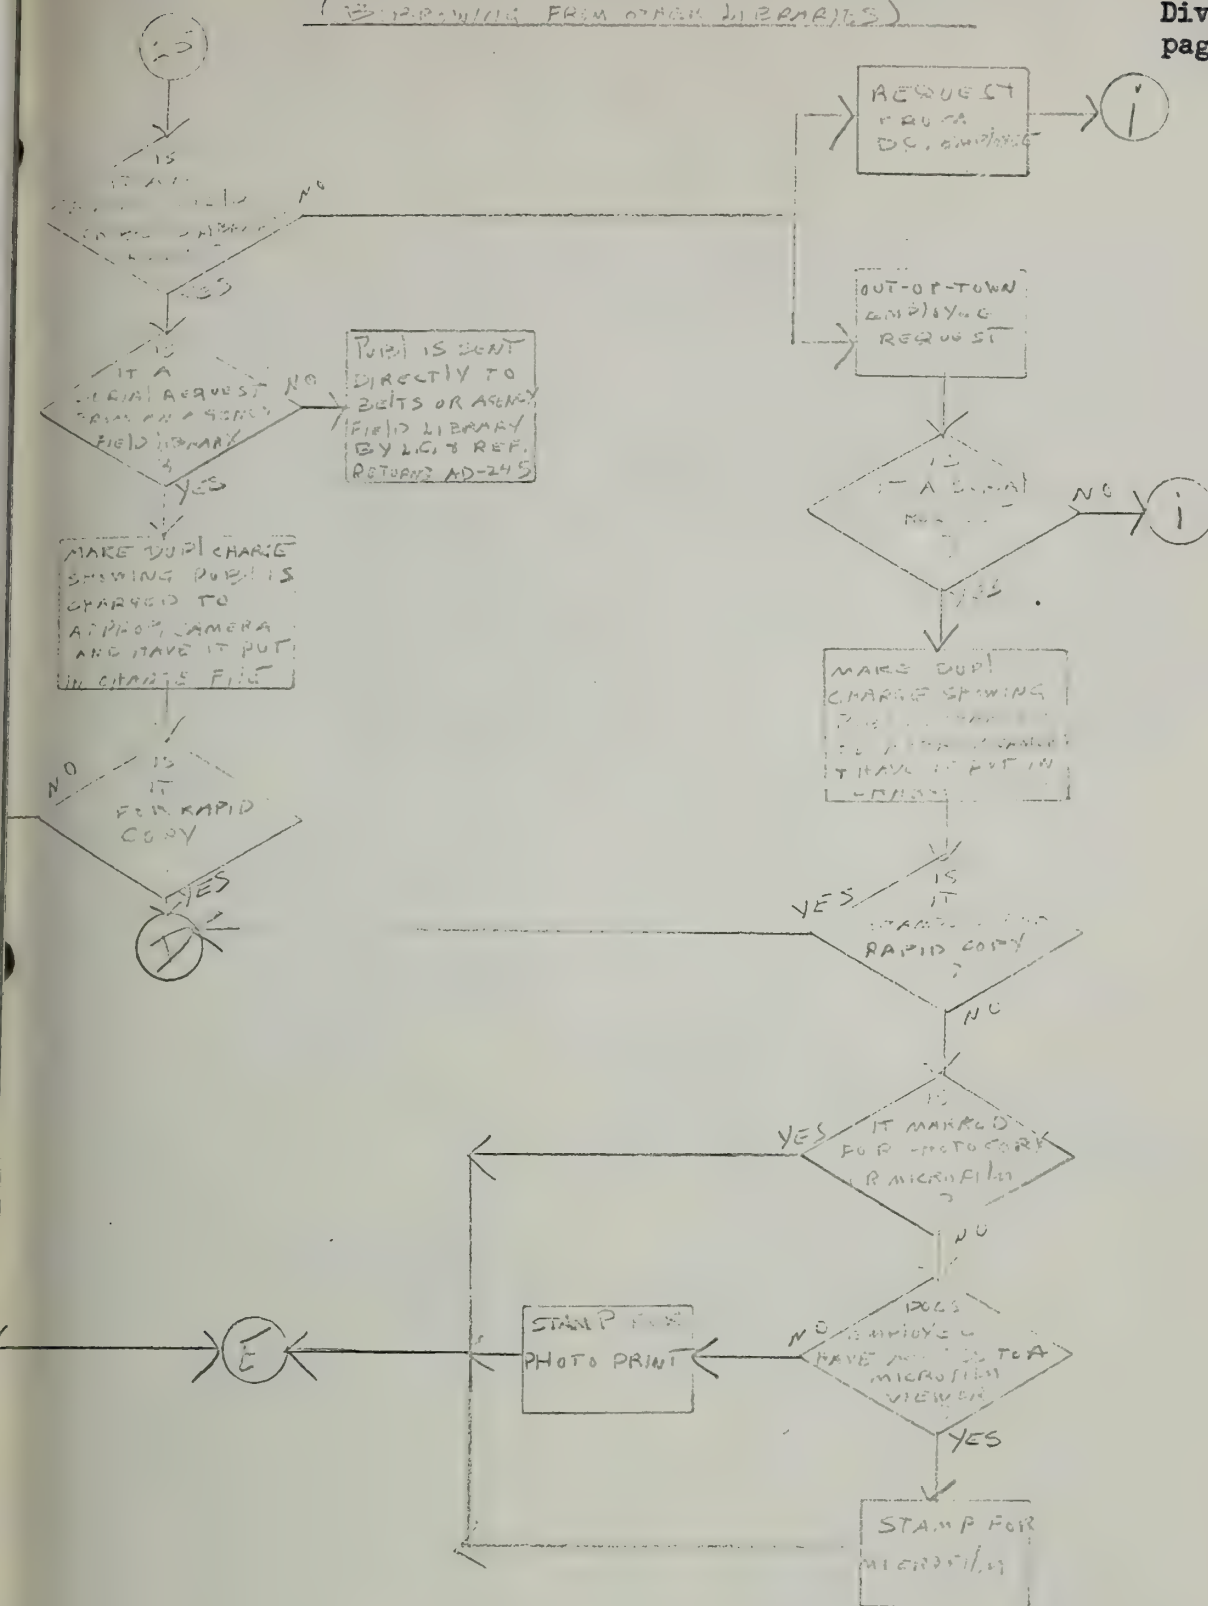 (BORROWING FROM OTHER LIBRARIES)
Div
pag
REQUEST
FROM
D.C. EMPLOYEE
i
IS
IT
NO
YES
OUT-OF-TOWN
EMPLOYEE
REQUEST
IS
IT A
SERIAL REQUEST
FROM AN AGENCY
FIELD LIBRARY
?
NO
YES
PUBL IS SENT
DIRECTLY TO
BELTS OR AGENCY
FIELD LIBRARY
BY L.C. & REF.
RETURNS AD-245
IS
IT A SERIAL
?
NO
i
YES
MAKE DUPL CHARGE
SHOWING PUBL IS
CHARGED TO
APPROP. CAMERA
AND HAVE IT PUT
IN CHARGE FILE
MAKE DUPL
CHARGE SHOWING
PUBL
TO
& HAVE IT PUT IN
NO
IS
IT
FOR RAPID
COPY
YES
D
YES
IS
IT
RAPID COPY
?
NO
YES
IS
IT MARKED
FOR PHOTOCOPY
OR MICROFILM
?
NO
E
STAMP FOR
PHOTO PRINT
NO
DOES
EMPLOYEE
HAVE ACCESS TO A
MICROFILM
VIEWER
YES
STAMP FOR
MICROFILM